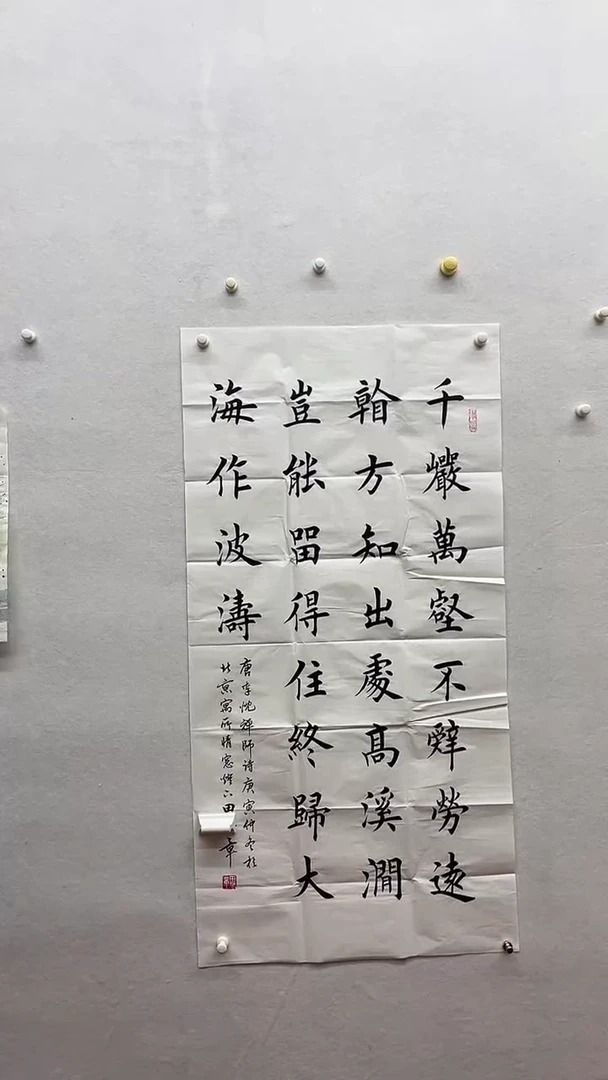 千巖萬壑不辭勞遠
看方知出處高溪澗
豈能留得住終歸大
海作波濤
唐李忱禪師詩庚寅仲冬於
北京寓所晴窗燈下田章